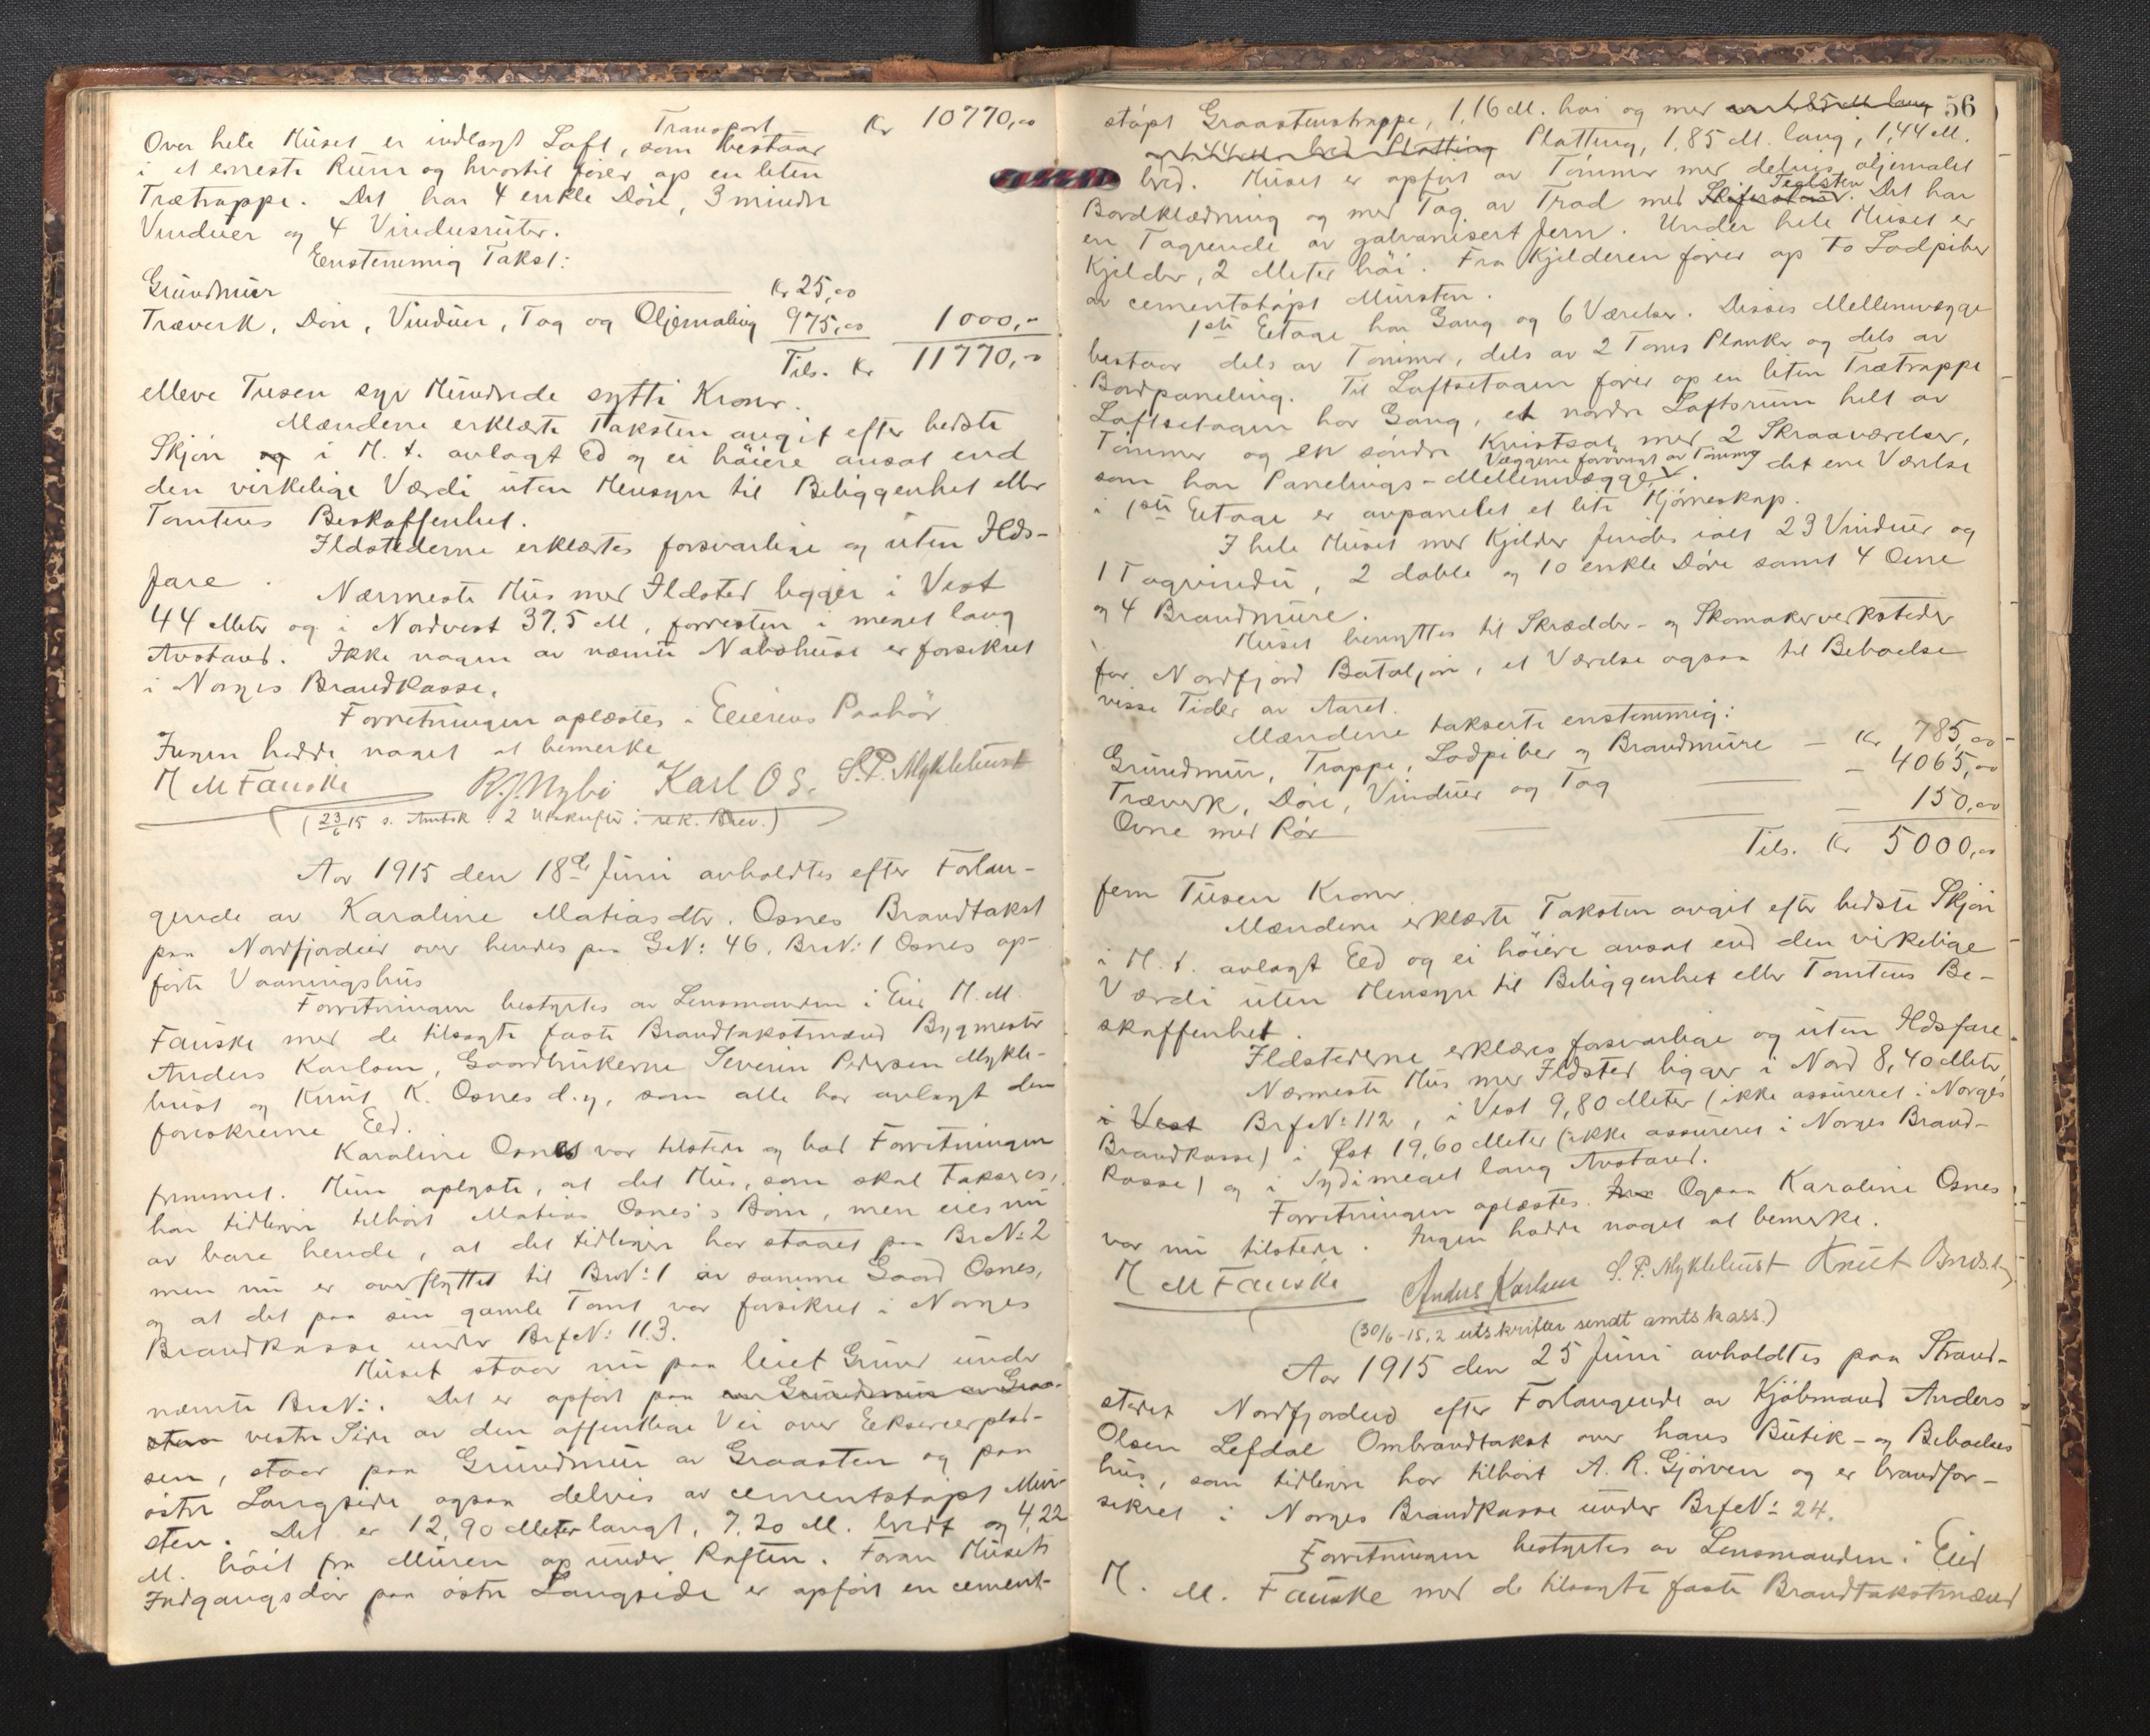 Transport Kr 10770,00
Over hele Huset er indlagt Loft, som bestaar
i et eneste Rum og hvortil fører op en liten
Trætrappe. Det har 4 enkle Døre, 3 mindre
Vinduer og 4 Vindusruter.
Enstemmig Takst:
Grundmur Kr 25,00
Træverk, Døre, Vinduer, Tag og Oljemaling 975,00 1000,-
Tils. Kr 11770,-
elleve Tusen syv Hundrede sytti Kroner.
Mændene erklærte Taksten avgit efter bedste
Skjøn og i H. t. avlagt Ed og ei høiere ansat end
den virkelige Værdi uten Hensyn til Beliggenhet eller
Tomtens Beskaffenhet.
Ildstederne erklærtes forsvarlige og uten Ilds-
fare.
Nærmeste Hus med Ildsted ligger i Vest
44 Meter og i Nordvest 37.5 M, forresten i meget lang
Avstand. Ikke nogen av nævnte Nabohuse er forsikret
i Norges Brandkasse.
Forretningen oplæstes i Eierens Paahør.
Ingen hadde noget at bemerke
H M Fauske R.J. Nybø Karl O S. S.P. Myklebust
(23/6 15 s. Amtsk. 2 Utskrifter i rek. Brev.)
Aar 1915 den 18de Juni avholdtes efter Forlan-
gende av Karaline Matiasdtr. Osnes Brandtakst
paa Nordfjordeid over hendes paa G.N: 46, Br.N: 1 Osnes op-
førte Vaaningshus
Forretningen bestyrtes av Lensmanden i Eid H. M.
Fauske med de tilsagte faste Brandtakstmænd Bygmester
Anders Karlsen, Gaardbrukerne Severin Pedersen Mykle-
bust og Knut K. Osnes d.y., som alle har avlagt den
foreskrevne Ed.
Karaline Osnes var tilstede og bad Forretningen
fremmet. Hun oplyste, at det Hus, som skal takseres,
har tidligere tilhørt Matias Osnes's Børn, men eies nu
av bare hende, at det tidligere har staaet paa Br.N: 2
men nu er overflyttet til Br.N: 1 av samme Gaard Osnes,
og at det paa sin gamle Tomt var forsikret i Norges
Brandkasse under Brf.N: 113.
Huset staar nu paa leiet Grund under
nævnte Br.N:. Det er opført paa en Grundmur av Graa-
sten vestre Side av den offentlige Vei over Eekserserplad-
sen, staar paa Grundmur av Graasten og paa
østre Langside ogsaa delvis av cementstøpt Mur-
sten. Det er 12,90 Meter langt, 7,20 M. bredt og 4,22
M. høit fra Muren op under Raften. Foran Husets
Indgangsdør paa østre Langside er opført en cement-
56
støpt Graastenstrappe, 1,16 M. høi og med en 1,85 M. lang
og 1,44 M. bred Platting Platting, 1,85 M. lang, 1,44 M.
bred. Huset er opført av Tømmer med delvis oljemalet
Bordklædning og med Tag av Træd med Skiferstein Teglsten. Det har
en Tagrende av galvanisert Jern. Under hele Huset er
Kjelder, 2 Meter høi. Fra Kjelderen fører op to Lodpiber
av cementstøpt Mursten.
1ste Etage har Gang og 6 Værelser. Disses Mellemvægge
bestaar dels av Tømmer, dels av 2 Toms Planker og dels av
Bordpaneling. Til Loftsetagen fører op en liten Trætrappe
Loftsetagen har Gang, et nordre Loftsrum helt av
Tømmer og en søndre Kvistsal med 2 Skraaværelser,
som har Panelings-Mellemvægge, Væggene forøvrigt av Tømmer. I det ene Værelse
i 1ste Etage er avpanelet et lite Hjørneskap.
I hele Huset med Kjelder findes ialt 23 Vinduer og
1 Tagvindu, 2 doble og 10 enkle Døre samt 4 Ovne
og 4 Brandmure.
Huset benyttes til Skrædder- og Skomakerverksteder
for Nordfjord Bataljon, et Værelse ogsaa til Beboelse
visse Tider av Aaret.
Mændene takserte enstemmig:
Grundmur, Trappe, Lodpiber og Brandmure - Kr 785,00
Træverk, Døre, Vinduer og Tag - 4065,00
Ovne med Rør - 150,00
Tils. Kr 5000,00
fem Tusen Kroner.
Mændene erklærte Taksten avgit efter bedste Skjøn
i H. t. avlagt Eed og ei høiere ansat end den virkelige
Værdi uten Hensyn til Beliggenhet eller Tomtens Be-
skaffenhet.
Ildstederne erklæres forsvarlige og uten Ildsfare.
Nærmeste Hus med Ildsted ligger i Nord 8,40 Meter,
i Vest Brf.N: 112, i Vest 9,80 Meter (ikke assureret i Norges
Brandkasse) i Øst 19,60 Meter (ikke assureret i Norges Brand-
kasse) og i Syd i meget lang Avstand.
Forretningen oplæstes. Ogsaa Karaline Osnes
var nu tilstede. Ingen hadde noget at bemerke.
H M Fauske Anders Karlsen S. P. Myklebust Knut Osnes d.y.
(30/6-15, 2 utskrifter sendt amtskass.)
Aar 1915 den 25 Juni avholdtes paa Strand-
stedet Nordfjordeid efter Forlangende av Kjøbmand Anders
Olsen Lefdal Ombrandtakst over hans Butik- og Beboelses
hus, som tidligere har tilhørt A. R. Gjørven og er brandfor-
sikret i Norges Brandkasse under Brf.N: 24.
Forretningen bestyrtes av Lensmanden i Eid
H. M. Fauske med de tilsagte faste Brandtakstmænd